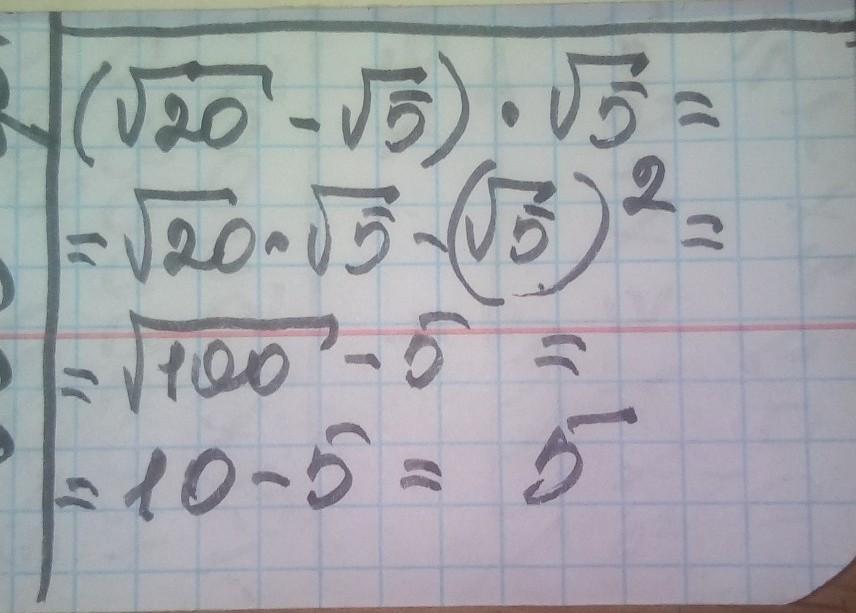 (√20 - √5) · √5 =
= √20 · √5 - (√5)² =
= √100 - 5 =
= 10 - 5 = 5